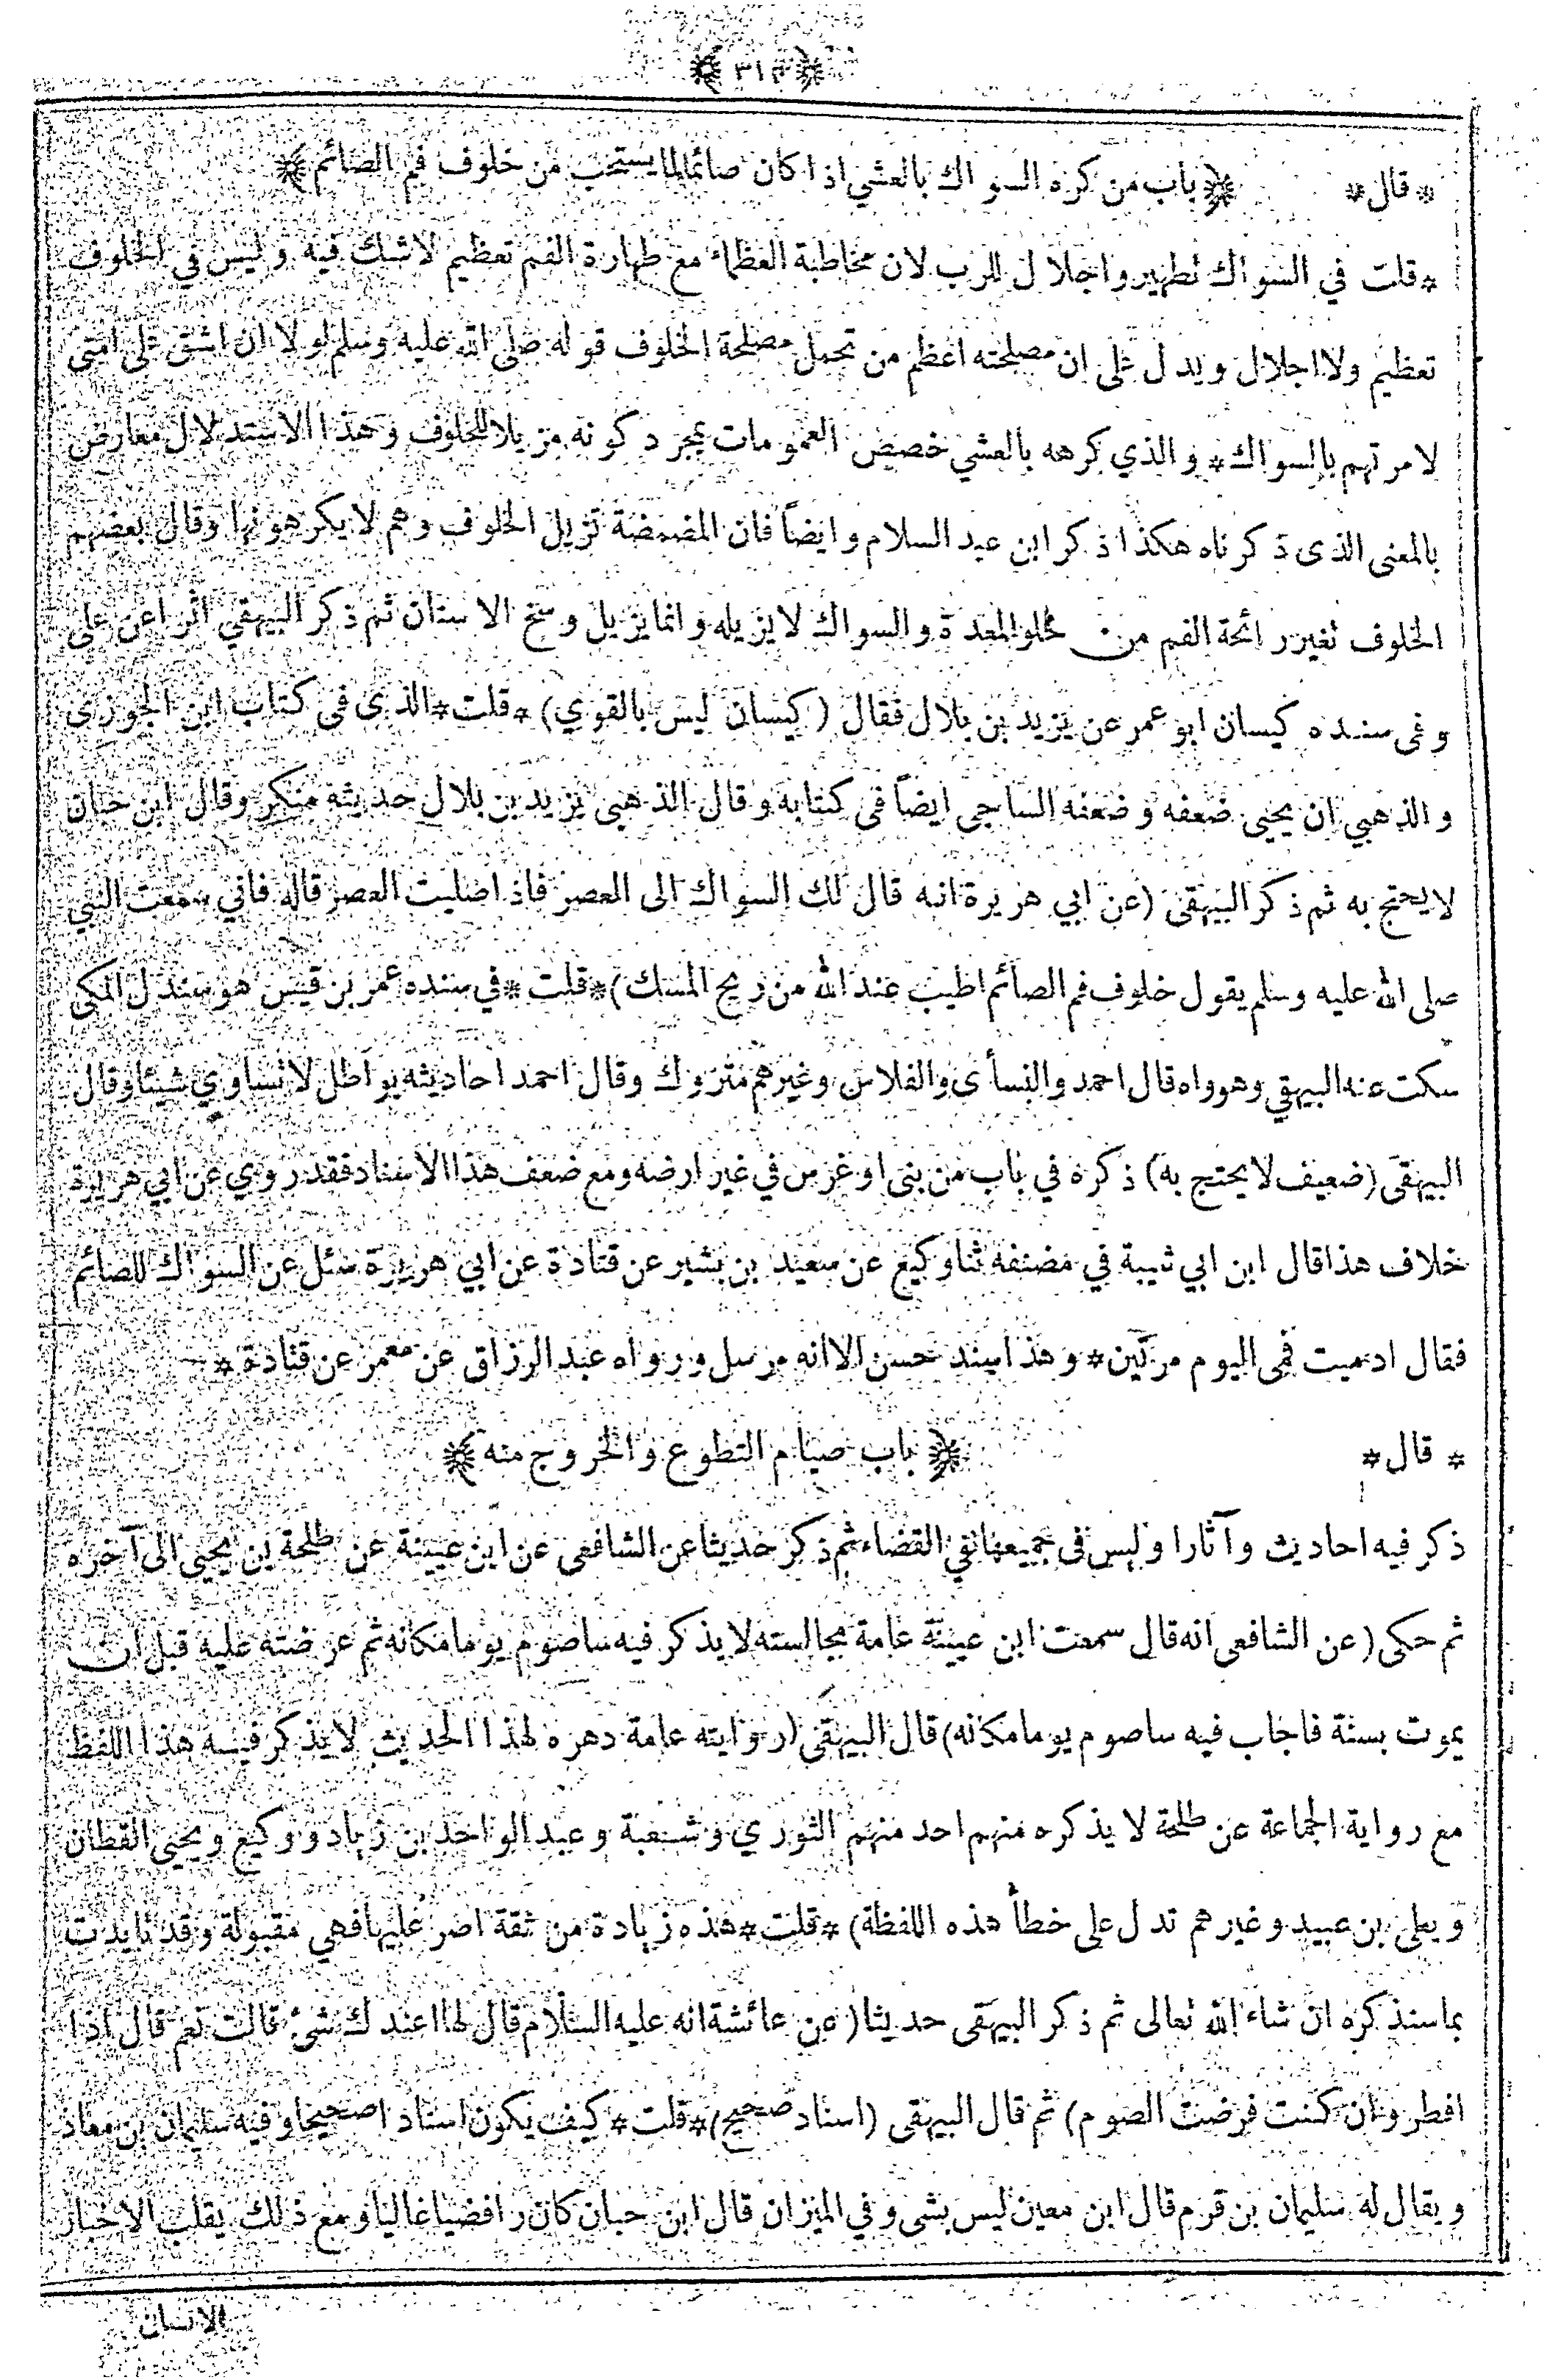 ﴿ ٣١٣ ﴾
* قال * ﴿ باب من كره السواك بالعشي اذا كان صائما لما يستحب من خلوف فم الصائم ﴾
* قلت في السواك تطهير واجلال للرب لان مخاطبة العظماء مع طهارة الفم تعظيم لاشك فيه وليس في الخلوف
تعظيم ولا اجلال ويدل على ان مصلحته اعظم من تحمل مصلحة الخلوف قوله صلى الله عليه وسلم لولا ان اشق على امتي
لامرتهم بالسواك * والذي كرهه بالعشي خصيص العمومات بمجرد كونه مزيلا للخلوف وهذا الاستدلال معارض
بالمعنى الذى ذكرناه هكذا ذكر ابن عبد السلام وايضاً فان المضمضة تزيل الخلوف وهم لا يكرهونها وقال بعضهم
الخلوف تغير رائحة الفم من خلو المعدة والسواك لا يزيله وانما يزيل وسخ الاسنان ثم ذكر البيهقي اثرا عن على
وفى سنده كيسان ابو عمر عن يزيد بن بلال فقال (كيسان ليس بالقوي) * قلت * الذى فى كتاب ابن الجوزى
والذهبي ان يحيى ضعفه وضعفه الساجى ايضاً فى كتابه وقال الذهبي يزيد بن بلال حديثه منكر وقال ابن حبان
لا يحتج به ثم ذكر البيهقى (عن ابي هريرة انه قال لك السواك الى العصر فاذا صليت العصر فالقه فاني سمعت النبي
صلى الله عليه وسلم يقول خلوف فم الصائم اطيب عند الله من ريح المسك) * قلت * في سنده عمر بن قيس هو سندل المكى
سكت عنه البيهقي وهو واه قال احمد والنسأى والفلاس وغيرهم متروك وقال احمد احاديثه بواطل لا تساوي شيئا وقال
البيهقى (ضعيف لا يحتج به) ذكره في باب من بنى او غرس في غير ارضه ومع ضعف هذا الاسناد فقد روي عن ابي هريرة
خلاف هذا قال ابن ابي شيبة في مصنفه ثنا وكيع عن سعيد بن بشير عن قتادة عن ابي هريرة سئل عن السواك للصائم
فقال ادميت فمى اليوم مرتين * وهذا سند حسن الا انه مرسل ورواه عبد الرزاق عن معمر عن قتادة *
* قال * ﴿ باب صيام التطوع والخروج منه ﴾
ذكر فيه احاديث وآثارا وليس فى جميعها نفي القضاء ثم ذكر حديثا عن الشافعى عن ابن عيينة عن طلحة بن يحيى الى آخره
ثم حكى (عن الشافعى انه قال سمعت ابن عيينة عامة مجالسته لا يذكر فيه ساصوم يوما مكانه ثم عرضته عليه قبل ان
يموت بسنة فاجاب فيه ساصوم يوما مكانه) قال البيهقى (روايته عامة دهره لهذا الحديث لا يذكر فيه هذا اللفظ
مع رواية الجماعة عن طلحة لا يذكره منهم احد منهم الثوري وشعبة وعبد الواحد بن زياد ووكيع ويحيى القطان
ويعلى بن عبيد وغيرهم تدل على خطأ هذه اللفظة) * قلت * هذه زيادة من ثقة اصر عليها فهي مقبولة وقد تايدت
بما سنذكره ان شاء الله تعالى ثم ذكر البيهقى حديثا (عن عائشة انه عليه السلام قال لها اعندك شئ قالت نعم قال اذا
افطر وان كنت فرضت الصوم) ثم قال البيهقى (اسناد صحيح) * قلت * كيف يكون اسنادا صحيحا وفيه سليمان بن معاذ
ويقال له سليمان بن قرم قال ابن معين ليس بشى وفي الميزان قال ابن حبان كان رافضيا غاليا ومع ذلك يقلب الاخبار
الانسان